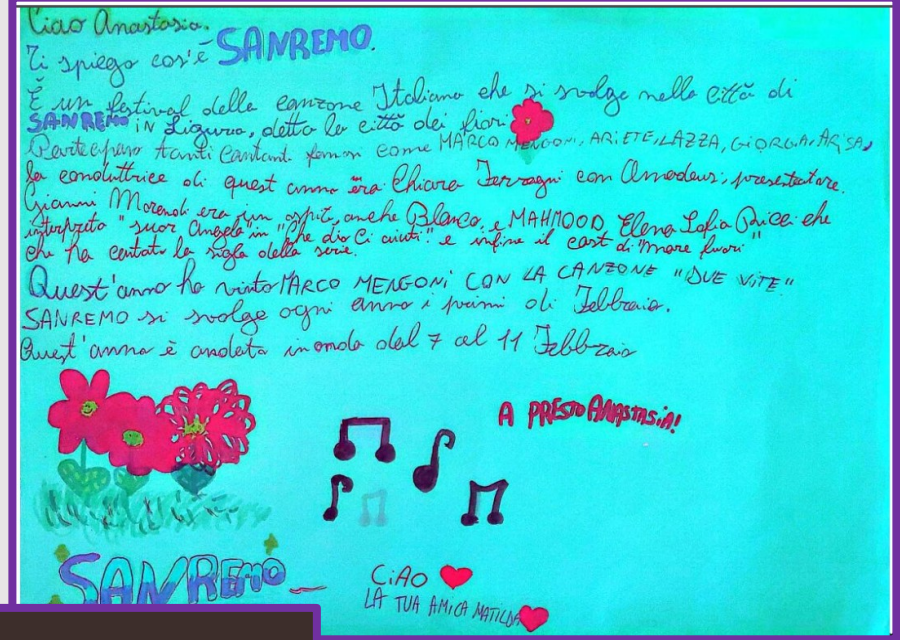 Ciao Anastasia.
Ti spiego cos'è SANREMO.
È un festival della canzone Italiana che si svolge nella città di
SANREMO IN Liguria, detta la città dei fiori
Partecipano tanti cantanti famosi come MARCO MENGONI, ARIETE, LAZZA, GIORGIA, ARISA,
la conduttrice di quest'anno era Chiara Ferragni con Amadeus, presentatore.
Gianni Morandi era un ospite, anche Blanco, e MAHMOOD Elena Sofia Ricci che
interpreta "suor Angela" in "Che dio Ci aiuti" e infine il cast di "mare fuori"
che ha cantato la sigla della serie.
Quest'anno ha vinto MARCO MENGONI CON LA CANZONE "DUE VITE"
SANREMO si svolge ogni anno i primi di Febbraio.
Quest'anno è andata in onda dal 7 al 11 Febbraio
A PRESTO ANASTASIA!
SANREMO
CIAO
LA TUA AMICA MATILDA